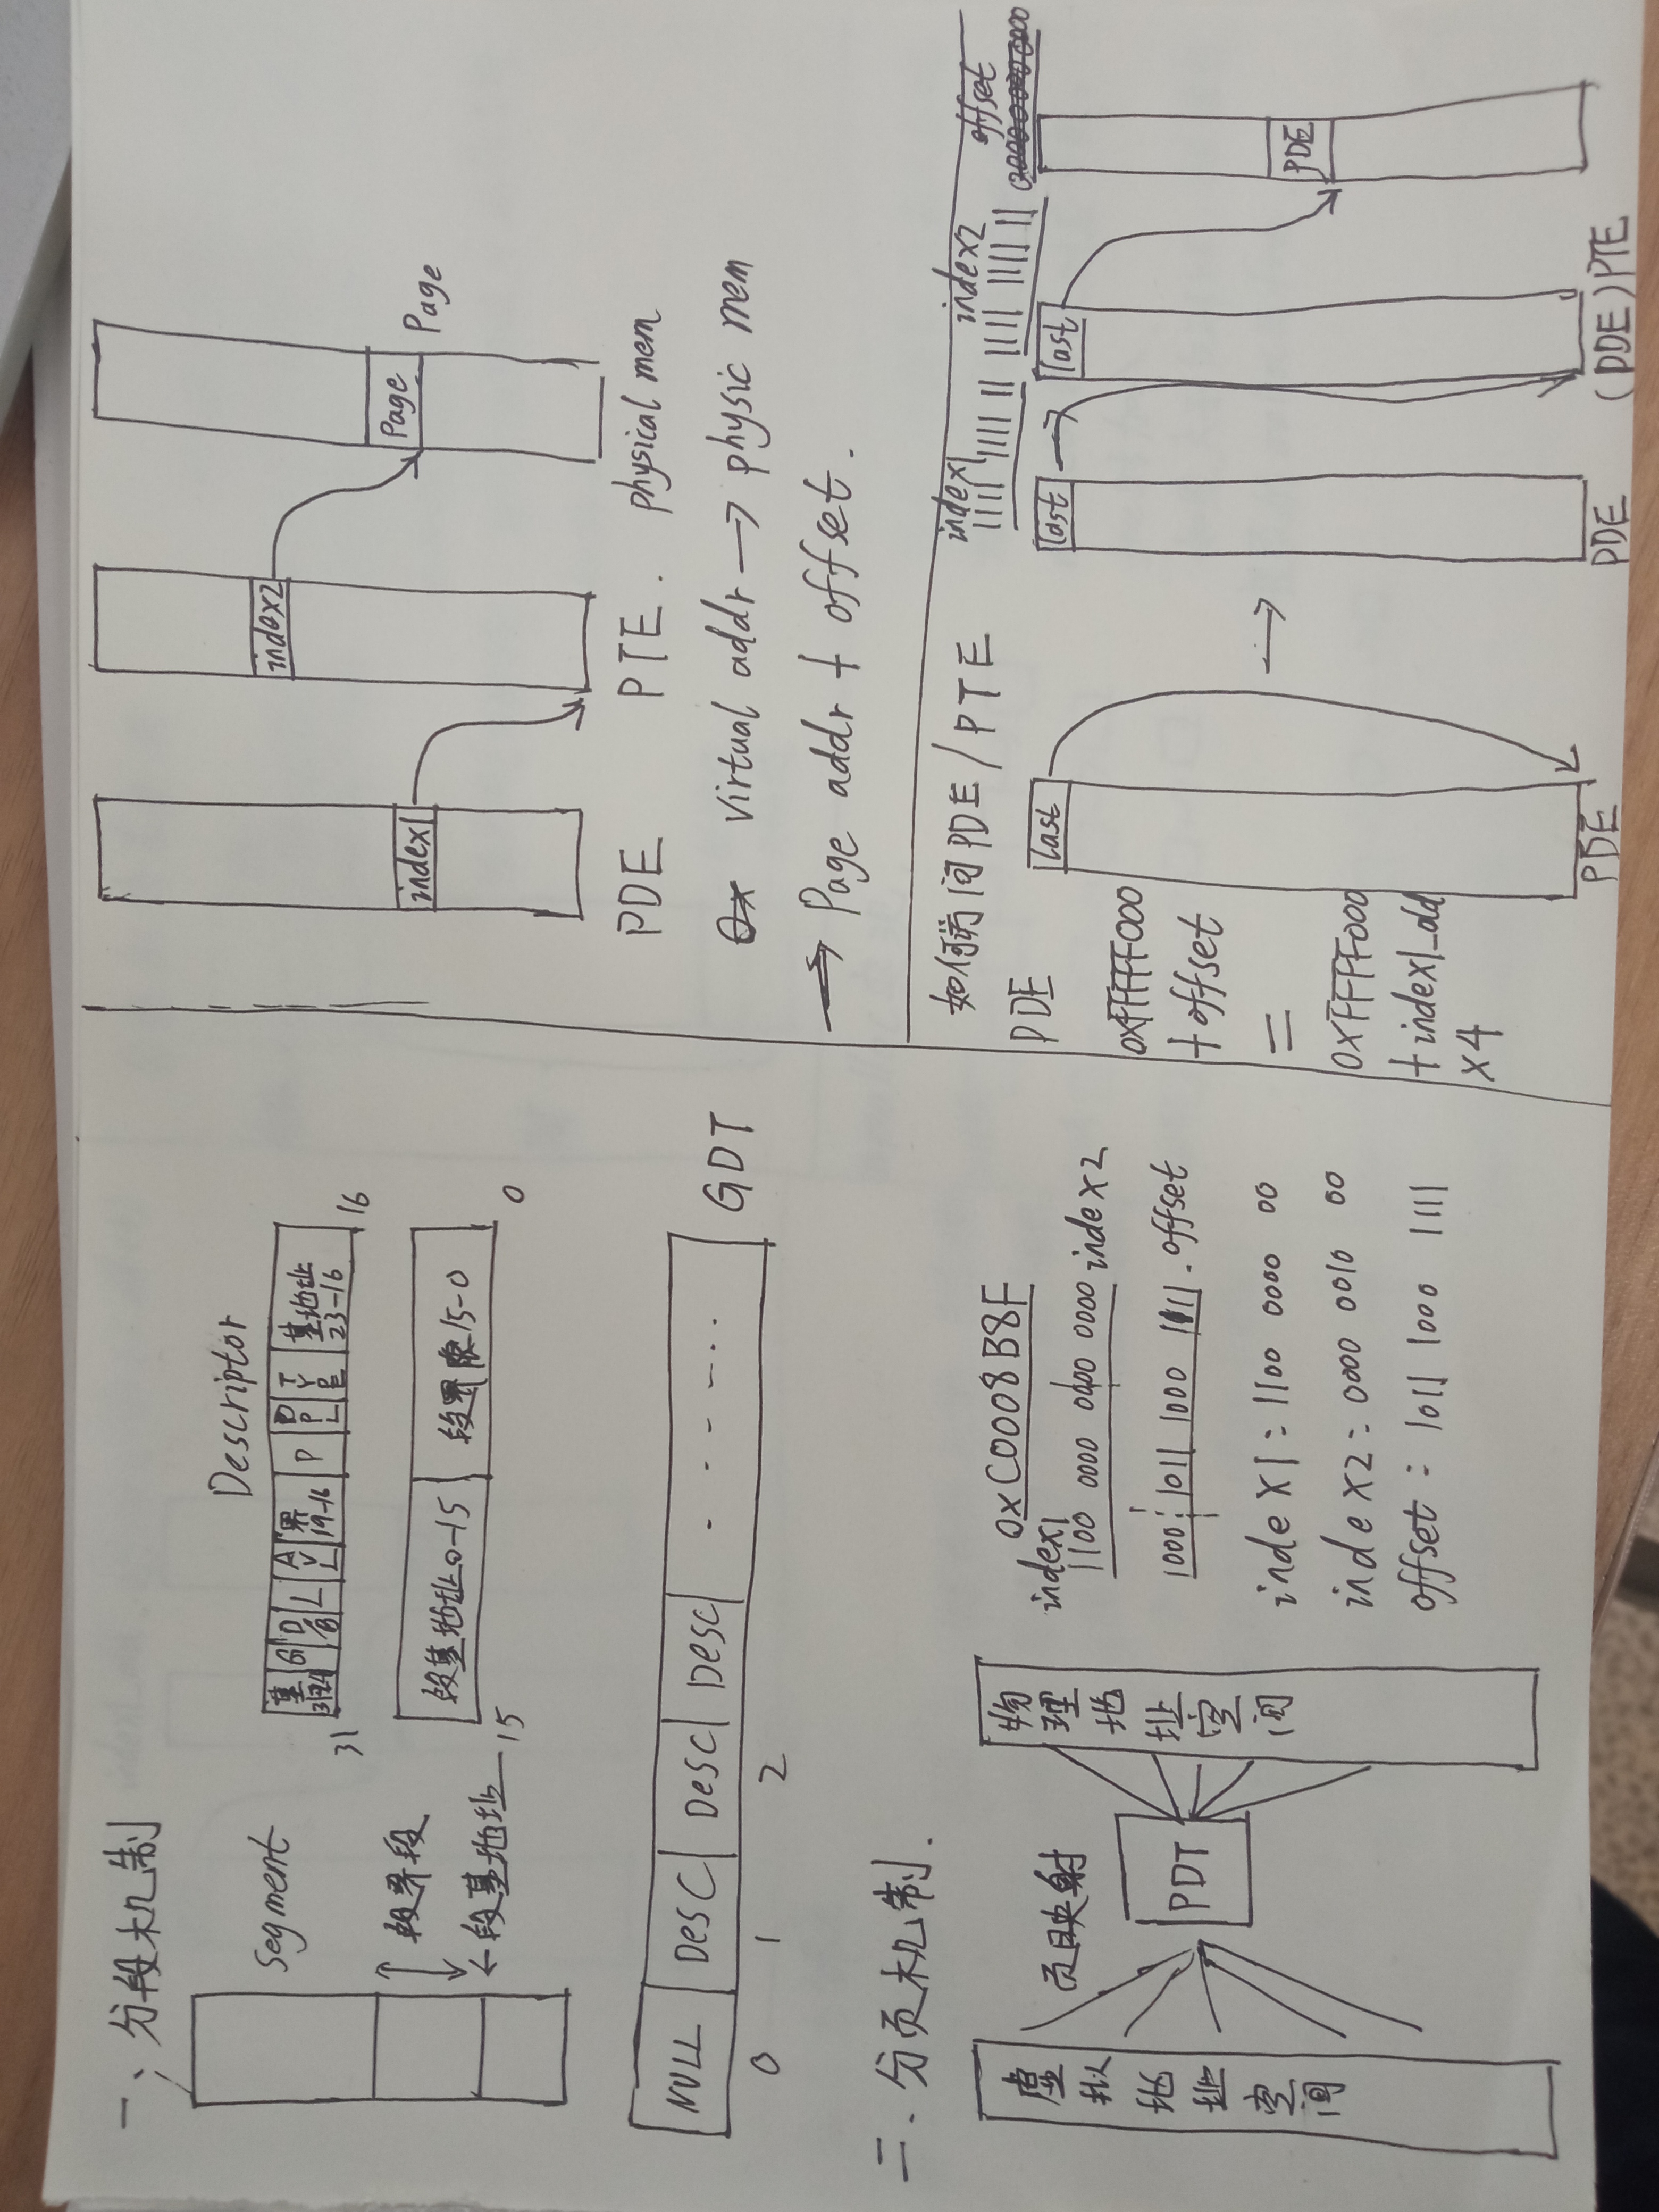 一、分段机制
segment
段界段
←段基地址
Descriptor
基 31-24 G D/B L AVL 界 19-16 P DPL TYPE 基地址 23-16
31 16
段基地址0-15 段界限15-0
15 0
NULL Desc Desc Desc - - - - - . .
GDT
0 1 2
二.分页机制.
虚拟地址空间
页映射
PDT
物理地址空间
0xC0008B8F
index1
1100 0000 0000 0000 index2
1000 1011 1000 1111.offset
index1: 1100 0000 00
index2: 0000 0010 00
offset: 1011 1000 1111
index1
index2
Page
Page
PDE PTE. physical mem
0x virtual addr → physic mem
→ Page addr + offset.
如何访问PDE/PTE
PDE
0xFFFFF000
+offset
=
0xFFFFF000
+index1_add
×4
last
PDE
→
index1 index2 offset
1111 1111 11 1111 1111 11 0000 0000 0000
last → last
PDE
PDE (PDE)PTE